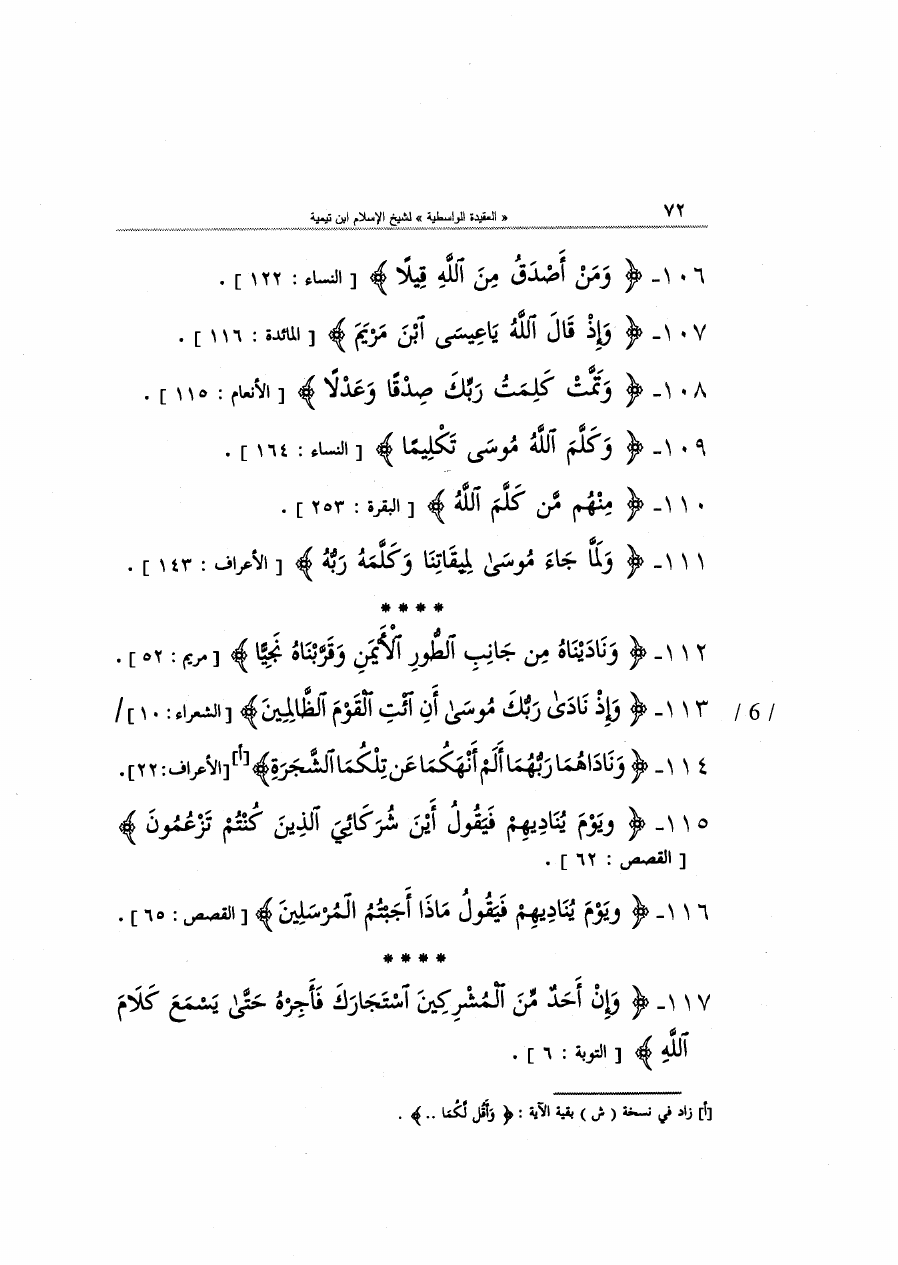 ٧٢
« العقيدة الواسطية » لشيخ الإسلام ابن تيمية
١٠٦ـ ﴿ وَمَنْ أَصْدَقُ مِنَ ٱللَّهِ قِيلًا ﴾ [ النساء : ١٢٢ ] .
١٠٧ـ ﴿ وَإِذْ قَالَ ٱللَّهُ يَاعِيسَى ٱبْنَ مَرْيَمَ ﴾ [ المائدة : ١١٦ ] .
١٠٨ـ ﴿ وَتَمَّتْ كَلِمَتُ رَبِّكَ صِدْقًا وَعَدْلًا ﴾ [ الأنعام : ١١٥ ] .
١٠٩ـ ﴿ وَكَلَّمَ ٱللَّهُ مُوسَى تَكْلِيمًا ﴾ [ النساء : ١٦٤ ] .
١١٠ـ ﴿ مِنْهُم مَّن كَلَّمَ ٱللَّهُ ﴾ [ البقرة : ٢٥٣ ] .
١١١ـ ﴿ وَلَمَّا جَاءَ مُوسَىٰ لِمِيقَاتِنَا وَكَلَّمَهُ رَبُّهُ ﴾ [ الأعراف : ١٤٣ ] .
****
١١٢ـ ﴿ وَنَادَيْنَاهُ مِن جَانِبِ ٱلطُّورِ ٱلْأَيْمَنِ وَقَرَّبْنَاهُ نَجِيًّا ﴾ [ مريم : ٥٢ ] .
١١٣ـ ﴿ وَإِذْ نَادَىٰ رَبُّكَ مُوسَىٰ أَنِ ٱئْتِ ٱلْقَوْمَ ٱلظَّالِمِينَ ﴾ [ الشعراء : ١٠ ] / / 6 /
١١٤ـ ﴿ وَنَادَاهُمَا رَبُّهُمَا أَلَمْ أَنْهَكُمَا عَن تِلْكُمَا ٱلشَّجَرَةِ ﴾[أ] [الأعراف: ٢٢].
١١٥ـ ﴿ وَيَوْمَ يُنَادِيهِمْ فَيَقُولُ أَيْنَ شُرَكَائِيَ ٱلَّذِينَ كُنْتُمْ تَزْعُمُونَ ﴾
[ القصص : ٦٢ ] .
١١٦ـ ﴿ وَيَوْمَ يُنَادِيهِمْ فَيَقُولُ مَاذَا أَجَبْتُمُ ٱلْمُرْسَلِينَ ﴾ [ القصص : ٦٥ ] .
****
١١٧ـ ﴿ وَإِنْ أَحَدٌ مِّنَ ٱلْمُشْرِكِينَ ٱسْتَجَارَكَ فَأَجِرْهُ حَتَّىٰ يَسْمَعَ كَلَامَ
ٱللَّهِ ﴾ [ التوبة : ٦ ] .
[أ] زاد في نسخة ( ش ) بقية الآية : ﴿ وَأَقُل لَّكُمَا .. ﴾ .